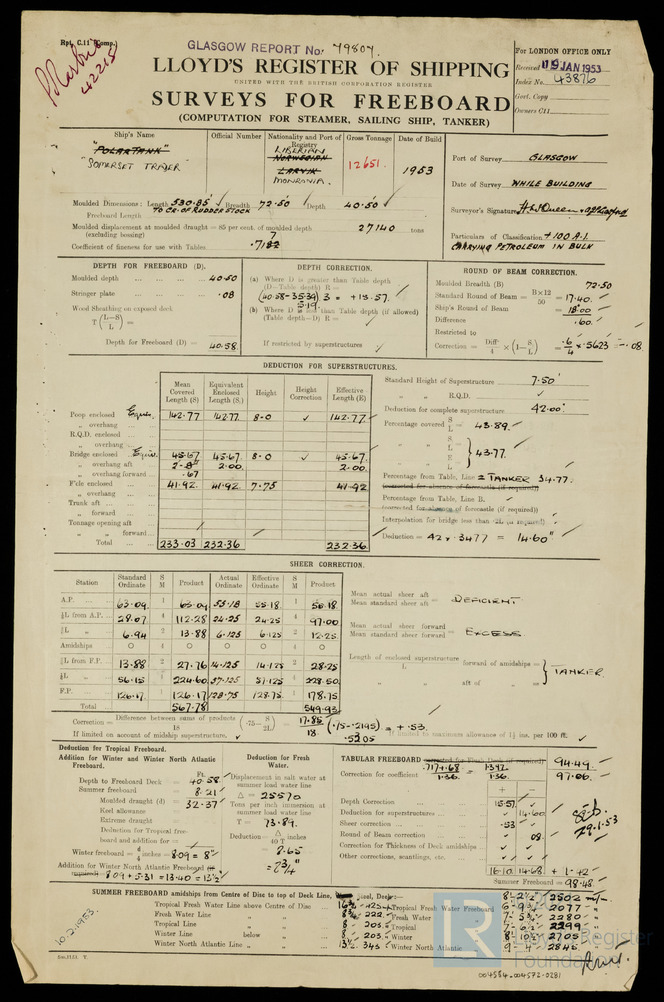 Rpt. C.11 (Comp.)
GLASGOW REPORT No. 79807.
42215
For LONDON OFFICE ONLY
Received 19 JAN 1953
Index No. 43876
Govt. Copy
Owners C11
LLOYD'S REGISTER OF SHIPPING
UNITED WITH THE BRITISH CORPORATION REGISTER
SURVEYS FOR FREEBOARD
(COMPUTATION FOR STEAMER, SAILING SHIP, TANKER)
Ship's Name Official Number Nationality and Port of Registry Gross Tonnage Date of Build
"POLARTANK"
"SOMERSET TRADER"
LIBERIAN
NORWEGIAN
LARVIK
MONROVIA.
12651.
1953
Port of Survey GLASGOW
Date of Survey WHILE BUILDING
Surveyor's Signature
Particulars of Classification +100 A.1.
CARRYING PETROLEUM IN BULK
Moulded Dimensions: Length 530.85' Breadth 72.50 Depth 40.50
Freeboard Length TO CR. OF RUDDER STOCK
Moulded displacement at moulded draught = 85 per cent. of moulded depth 27140 tons
(excluding bossing)
Coefficient of fineness for use with Tables
DEPTH FOR FREEBOARD (D).
Moulded depth 40.50
Stringer plate .08
Wood Sheathing on exposed deck
T (L-S/L) =
Depth for Freeboard (D) = 40.58
DEPTH CORRECTION.
(a) Where D is greater than Table depth
(D-Table depth) R =
(40.58-35.39) 3 = +15.57.
5.19
(b) Where D is less than Table depth (if allowed)
(Table depth-D) R =
If restricted by superstructures
ROUND OF BEAM CORRECTION.
Moulded Breadth (B) 72.50
Standard Round of Beam = B×12/50 = 17.40.
Ship's Round of Beam = 18.00
Difference .60.
Restricted to
Correction = Diff/4 × (1-S/L) = .6/4 × .5623 = -.08
DEDUCTION FOR SUPERSTRUCTURES.
Mean Covered Length (S) Equivalent Enclosed Length (S) Height Height Correction Effective Length (E)
Poop enclosed Equiv. 142.77 142.77 8-0 142.77
„ overhang
R.Q.D. enclosed
„ overhang
Bridge enclosed Equiv. 45.67 45.67 8-0 45.67
„ overhang aft 2.00 2.00
„ overhang forward .67
F'cle enclosed 41.92 41.92 7.75 41.92
„ overhang
Trunk aft
„ forward
Tonnage opening aft
„ „ forward
Total 233.03 232.36 232.36
Standard Height of Superstructure 7.50'
„ „ R.Q.D.
Deduction for complete superstructure 42.00"
Percentage covered S/L = 43.89.
„ „ S₁/L = 43.77
„ „ E/L =
Percentage from Table, Line = TANKER 34.77.
(corrected for absence of forecastle (if required))
Percentage from Table, Line B.
(corrected for absence of forecastle (if required))
Interpolation for bridge less than .2L (if required)
Deduction = 42 × .3477 = 14.60"
SHEER CORRECTION.
Station Standard Ordinate S M Product Actual Ordinate Effective Ordinate S M Product
A.P. 63.09 1 63.09 55.18 55.18 1 55.18
⅙L from A.P. 28.07 4 112.28 24.25 24.25 4 97.00
⅓L „ 6.94 2 13.88 6.125 6.125 2 12.25
Amidships 0 4 0 4
⅓L from F.P. 13.88 2 27.76 14.125 14.125 2 28.25
⅙L „ 56.15 4 224.60 57.125 57.125 4 228.50
F.P. 126.17 1 126.17 128.75 128.75 1 128.75
Total 567.78 549.93
Mean actual sheer aft
Mean standard sheer aft = DEFICIENT
Mean actual sheer forward
Mean standard sheer forward = EXCESS
Length of enclosed superstructure forward of amidships =
L „ „ aft of „ =
TANKER
Correction = Difference between sums of products/18 (.75 - S/2L) = 17.85/18 (.75-.2195) = +.53.
.5305
If limited on account of midship superstructure.
If limited to maximum allowance of 1½ ins. per 100 ft.
Deduction for Tropical Freeboard.
Addition for Winter and Winter North Atlantic Freeboard.
Ft.
Depth to Freeboard Deck = 40.58
Summer freeboard = 8.21
Moulded draught (d) = 32.37
Keel allowance
Extreme draught
Deduction for Tropical freeboard and addition for
Winter freeboard = d/4 inches = 8.09 = 8"
Addition for Winter North Atlantic Freeboard (if required) = 8.09 + 5.31 = 13.40 = 13½"
Deduction for Fresh Water.
Displacement in salt water at summer load water line
Δ = 25570
Tons per inch immersion at summer load water line
T = 73.89.
Deduction = Δ/40 T inches
= 8.65
TABULAR FREEBOARD corrected for Flush Deck (if required) 94.49
Correction for coefficient .717+.68/1.36 = 1.397/1.36. 97.06.
+ -
Depth Correction 15.57
Deduction for superstructures 14.60
Sheer correction .53
Round of Beam correction .08
Correction for Thickness of Deck amidships
Other corrections, scantlings, etc.
16.10 14.68 +1.42
Summer Freeboard = 98.48
29.1.53
SUMMER FREEBOARD amidships from Centre of Disc to top of Deck Line, Steel, Deck:- 8-2½" 2502
Tropical Fresh Water Line above Centre of Disc 16¾ 425 Tropical Fresh Water Freeboard 6-9¾ 2077
Fresh Water Line „ „ 8¾ 222 Fresh Water „ 7-5¾ 2280
Tropical Line „ „ 8 203 Tropical „ 7-6½ 2299
Winter Line below „ „ 8 203 Winter „ 8-10½ 2705
Winter North Atlantic Line „ „ 13½ 343 Winter North Atlantic „ 9-4 2845
10.2.1953.
LR
Lloyd's Register
Foundation
004584-004572-0281